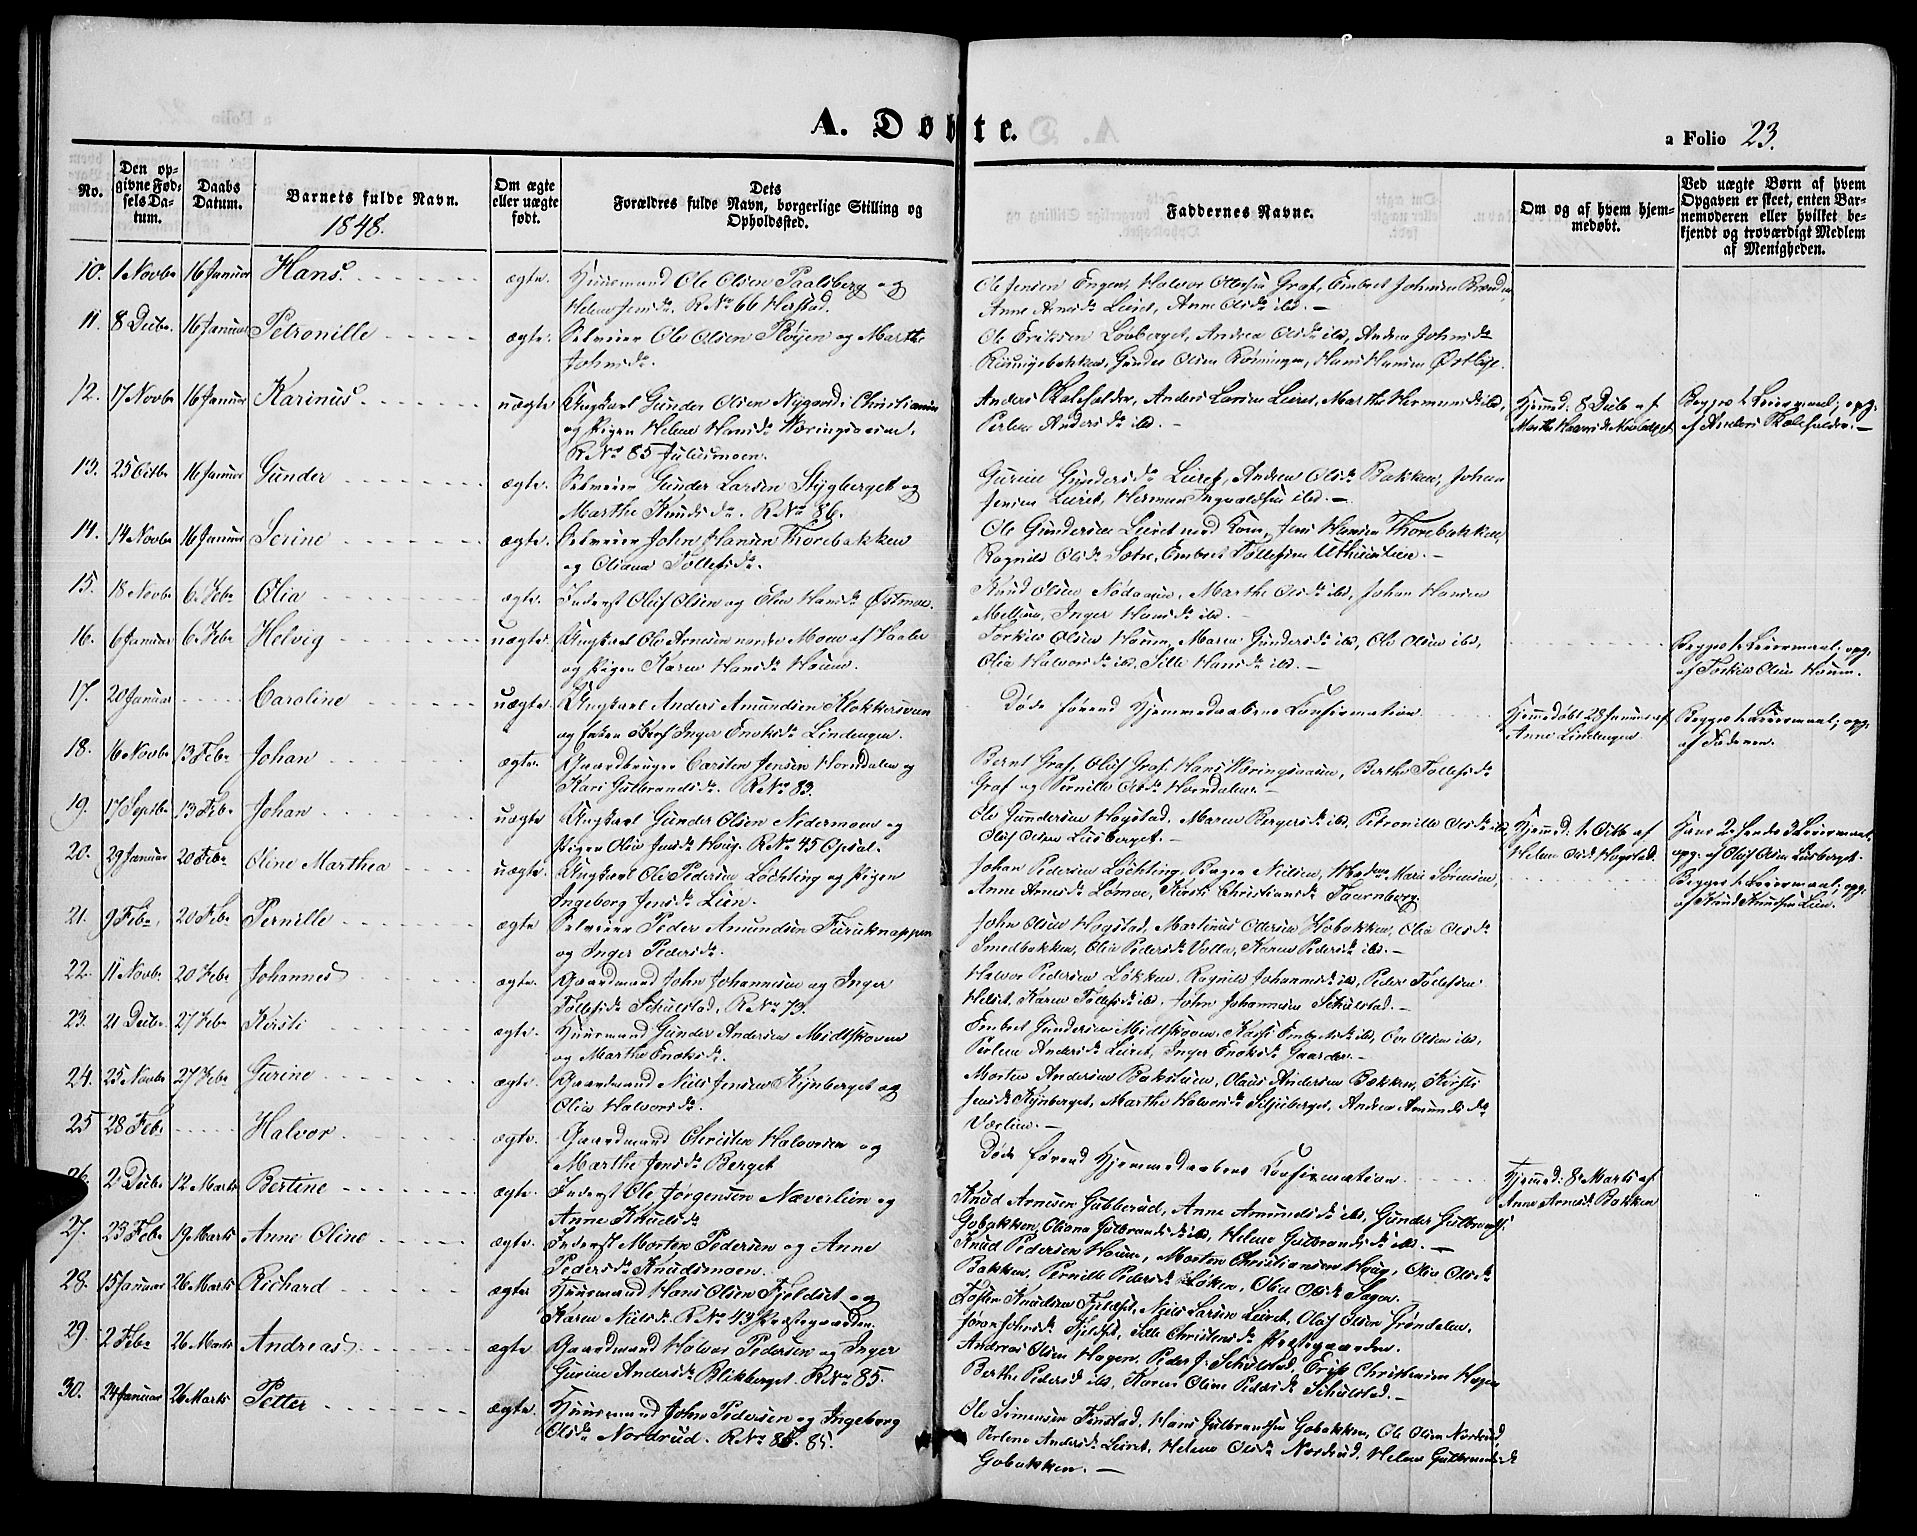 A. Døbte.
a Folio 23.
No.
Den op-
givne Fød-
sels Da-
tum.
Daabs
Datum.
Barnets fulde Navn.
1848.
Om ægte
eller uægte
født.
Dets
Forældres fulde Navn, borgerlige Stilling og
Opholdssted.
Faddernes Navne.
Om og af hvem hjem-
medøbt.
Ved uægte Børn af hvem
Opgaven er skeet, enten Bar-
nemoderen eller hvilket be-
kjendt og troværdigt Medlem
af Menigheden.
10. 1 Novbr 16 Januar Hans. ægte. Huusmand Ole Olsen Paalsberg og
Helene Jensdr. R No 66 Herstad.
Ole Jensen Engen, Halvor Olsen Graf, Embret Johnsen
Anne Arnesdr Leiret, Anne Olsdr ibd. —
11. 8 Decbr. 16 Januar Petronille ægte. Selveier Ole Olsen Røijen og Marthe
Johnsdr.
Ole Eriksen Lovberget, Andrea Olsdr ibd, Andrea Johnsdr
Gunder Olsen Rønningen, Hans Hansen Østbye.
12. 17 Novbr 16 Januar Karinus uægte Ungkarl Gunder Olsen Nygaard i Christiania
og Pigen Helene Hansdr Næringsaasen.
R No 85 Julusmoen.
Anders Skalefaldet, Anders Larsen Leiret, Marthe Hermansdr ibd,
Perlene Andersdr ibd. —
Hjemmed. 8 Decbr af
Marthe
Begges 1ste Leiermaal; opg.
af Anders Skalefaldet. —
13. 25 Octbr 16 Januar Gunder ægte. Selveier Gunder Larsen Stygberget og
Marthe Knudsdr. R No 86.
Gurine Gundersdr Leiret, Andrea Olsdr Bakken, Johan
Jensen Leiret, Herman Ingvaldsen ibd. —
14. 14 Novbr 16 Januar Serine ægte. Selveier John Hansen Thorebakken
og Oliana Tollefsdr.
Ole Gundersen Leiret med Kone, Jens Hansen Thorebakken,
Ragnild Olsdr Sætre, Embret Tollefsen Uthuuslien. —
15. 18 Novbr 6 Febr Olia ægte. Inderst Oluf Olsen og Eline Hansdr Østmoe.
Knud Olsen Nødaasen, Marthe Olsdr ibd, Johan Hansen
Mellem, Inger Hansdr ibd. —
16. 6 Januar 6 Febr Helvig uægte. Ungkarl Ole Arnesen nordre Moen af Vaaler
og Pigen Karen Hansdr Houm.
Torkild Olsen Houm, Maren Gundersdr ibd, Ole Olsen ibd,
Olia Halvorsdr ibd, Sille Hansdr ibd. —
Begges 1ste Leiermaal; opg.
af Torkild Olsen Houm.
17. 20 Januar Caroline uægte. Ungkarl Anders Amundsen Klokkersveen
og Enken Inger Enoksdr Lindengen.
Døde førend Hjemmedaabens Confirmation
Hjemmedøbt 28 Januar af
Anne Lindengen
Begges 1ste Leiermaal; opg.
af Faderen.
18. 16 Novbr 13 Febr Johan ægte. Gaardbruger Carsten Jensen Horndalen og
Kari Gulbrandsdr. R No 83.
Bernt Graf, Oluf Graf, Hans Næringsaasen, Berthe Tollefsdr
Graf og Pernille Olsdr Horndalen. —
19. 17 Septbr 13 Febr Johan uægte Ungkarl Gunder Olsen Nedermoen og
Pigen Olia Jensdr Houg. R No 45 Opsal.
Ole Gundersen Hogstad, Maren Bergersdr ibd, Petronille Olsdr ibd,
Oluf Olsen Lusberget. —
Hjemmed. 1 Octbr af
Helene Olsdr Hogstad.
Hans 2det hendes 3die Leiermaal
opg. af Oluf Olsen Lusberget.
20. 29 Januar 20 Febr Oline Marthea uægte. Ungkarl Ole Pedersen Løchting og Pigen
Ingeborg Jensdr Lien.
Johan Pedersen Løchting, Berger Nielsen, Madam Marie Sørensen,
Anne Arnesdr Lømoe, Kirsti Christiansdr Taarnberg.
Begges 1ste Leiermaal; opg.
af Knud Knudsen Lien.
21. 9 Febr. 20 Febr Pernille ægte Selveier Peder Amundsen Furuknappen
og Inger Pedersdr.
John Olsen Hogstad, Martinus Olsen Hobakken, Olia Olsdr
Smedbakken, Olia Pedersdr Volla, Karen Pedersdr ibd. —
22. 11 Novbr. 20 Febr Johannes ægte. Gaardmand John Johannesen og Inger
Tollefsdr Schulstad. R No 79.
Halvor Pedersen Løkken, Ragnild Johannesdr ibd, Peder Tollefsen
Helset, Karen Tollefsdr ibd, John Johannesen Schulstad. —
23. 21 Decbr. 27 Febr Kirsti ægte. Huusmand Gunder Andersen Midtskoven
og Marthe Enoksdr.
Embret Gundersen Midtskoven, Kirsti Embretsdr ibd, Ole Olsen ibd,
Perlene Andersdr Leiret, Inger Enoksdr Gaarder. —
24. 25 Novbr 27 Febr Gurine ægte. Gaardmand Niels Jensen Kynberget og
Olia Halvorsdr.
Morten Andersen Bakstuen, Olaus Andersen Bakken, Kirsti
Jensdr Kynberget, Marthe Halvorsdr Siljuberget, Andrea Amundsdr
25 28 Feb. Halvor ægte. Gaardmand Christen Halvorsen og
Marthe Jensdr Berget
Døde førend Hjemmedaabens Confirmation
Hjemmed. 8 Marts af
Anne Arnesdr Bakken
26. 2 Decbr 12 Marts Bertine ægte. Inderst Ole Jørgensen Næverlien og
Anne Knudsdr
Knud Arnesen Gulberud, Anne Amundsdr ibd, Gunder Gulbrands.
Gobakken, Oliana Gulbrandsdr ibd, Helene Gulbrandsdr ibd. —
27. 23 Febr 19 Marts Anne Oline ægte. Inderst Morten Pedersen og Anne
Pedersdr Knudsmoen.
Knud Pedersen Houm, Morten Christiansen Houg, Olia Olsdr
Bakken, Pernille Pedersdr Løken, Olia Olsdr Sagen. —
28. 15 Januar 26 Marts Richard ægte Huusmand Hans Olsen Fjeldset og
Karen Nielsdr. R No 43 Præstegaarden.
Tosten Knudsen Fjeldset, Niels Larsen Leiret, Oluf Olsen Grøndalen,
Johnsdr Fjeldset, Sille Christensdr Præstegaarden.
29. 2 Febr 26 Marts Andreas ægte Gaardmand Halvor Pedersen og Inger
Gurine Andersdr Blikberget. R No 85.
Andreas Olsen Hagen, Peder J. Schulstad, Christiansen Hagen
Berthe Pedersdr ibd, Karen Oline Pedersdr Schulstad. —
30. 24 Januar 26 Marts Petter ægte. Huusmand John Pedersen og Ingeborg
Olsdr Nordrud. R No 85.
Ole Simensen Finstad, Hans Gulbrandsen Gobakken, Ole Olsen Nordrud,
Perlene Andersdr Leiret, Helene Olsdr Nordrud, Helene Gulbrandsdr
Gobakken. —